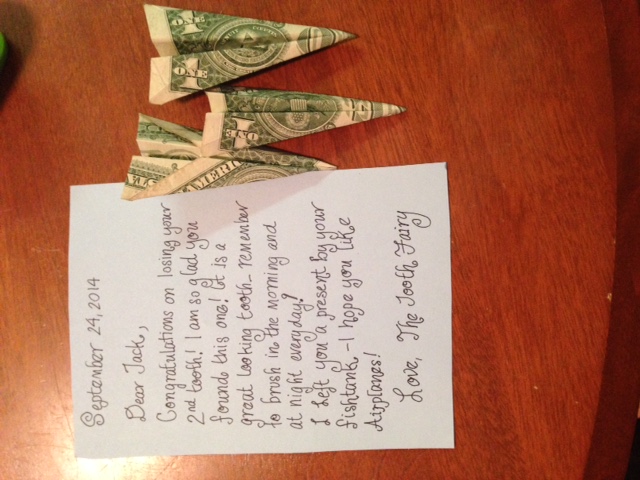 September 24, 2014
Dear Jack,
Congratulations on losing your
2nd tooth! I am so glad you
found this one! It is a
great looking tooth. remember
to brush in the morning and
at night everyday!
I left you a present by your
fishtank - I hope you like
Airplanes!
Love, The Tooth Fairy
ONE
ONE
ONE